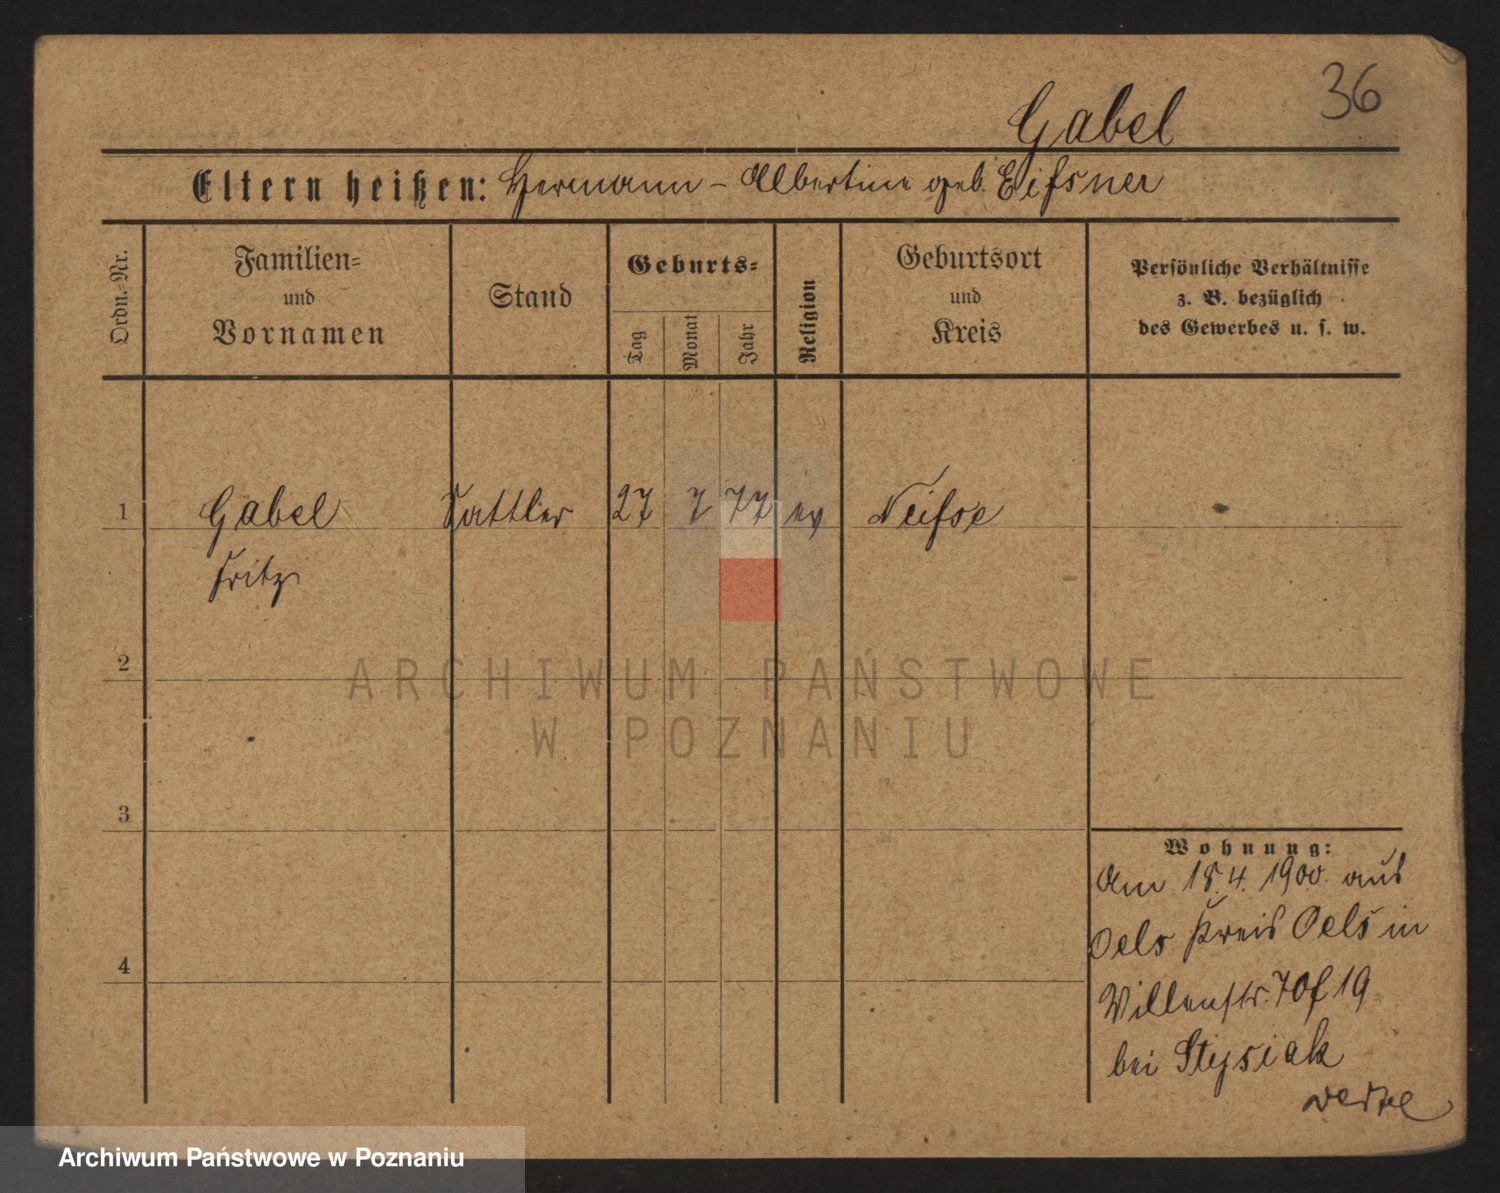 36
Gabel
Eltern heißen: Hermann - Albertine geb. Eifsner
Ordn.-Nr.
Familien-
und
Vornamen
Stand
Geburts-
Tag
Monat
Jahr
Religion
Geburtsort
und
Kreis
Persönliche Verhältnisse
z. B. bezüglich
des Gewerbes u. s. w.
1 Gabel Sattler 27 7 77 ev Neifse
Fritz
2
ARCHIWUM PAŃSTWOWE
W POZNANIU
3
Wohnung:
Am 18.4. 1900. aus
Oels Kreis Oels in
4
Villenstr. 7 Of 19
bei Stysiak
Archiwum Państwowe w Poznaniu